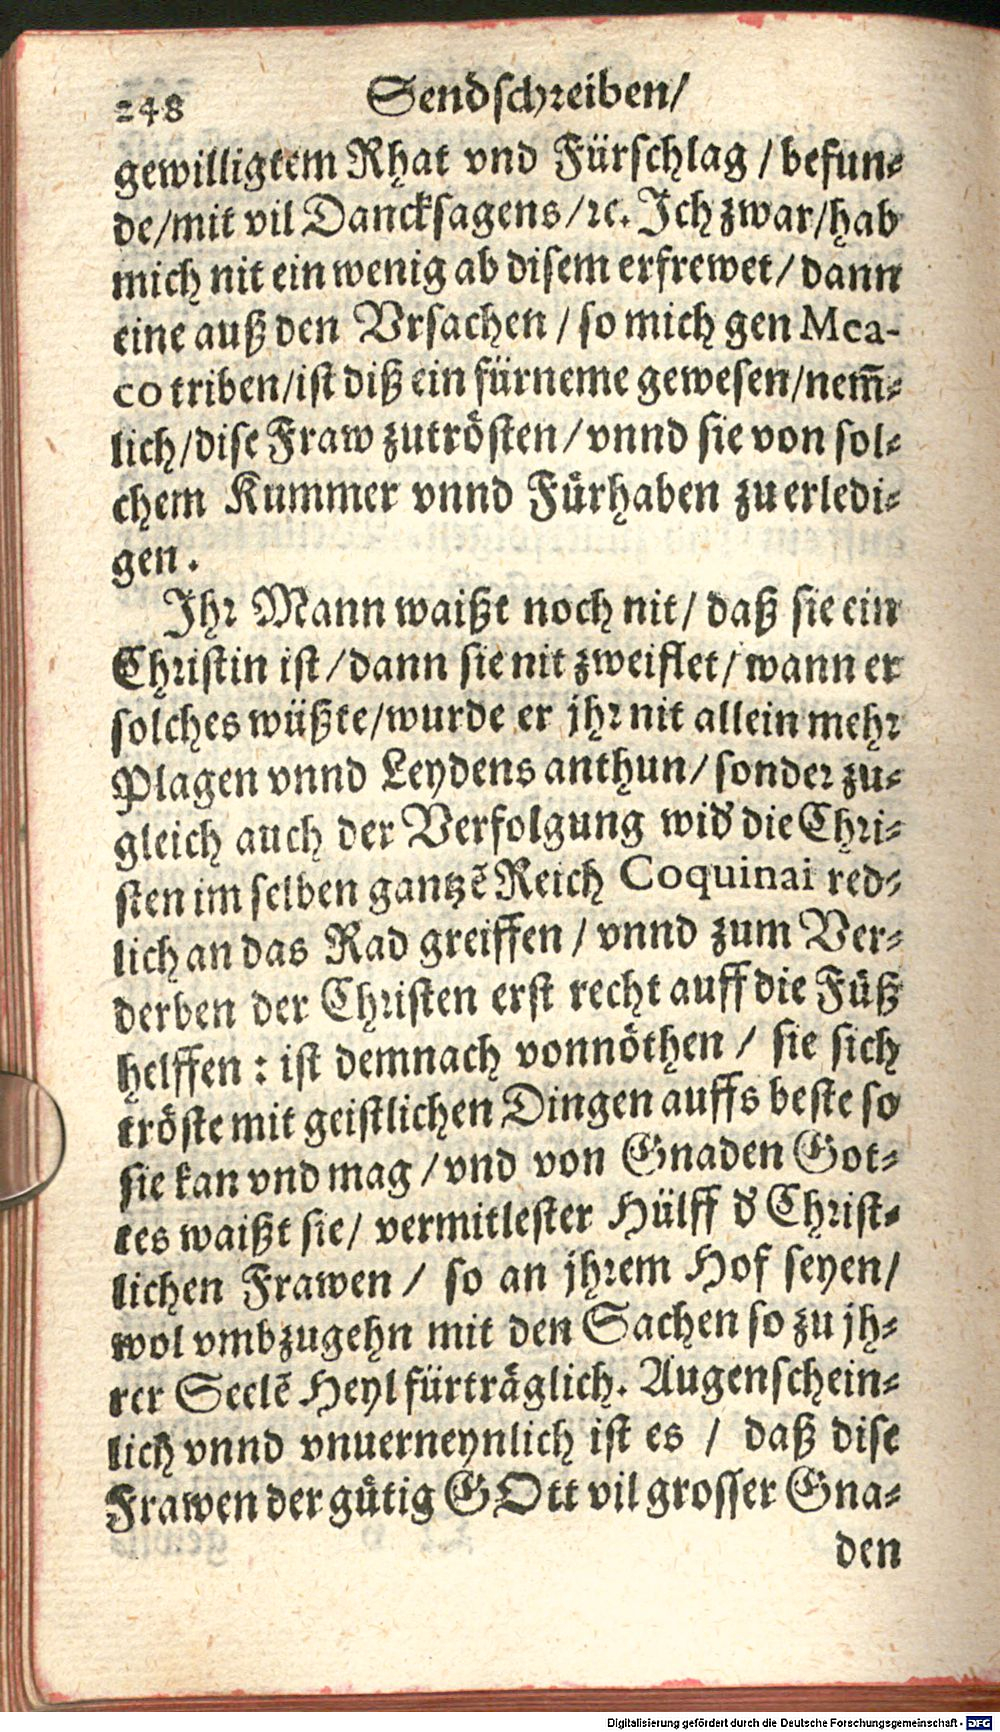 248 Sendschreiben/
gewilligtem Rhat vnd Fürschlag / befun⸗
de/mit vil Dancksagens/ꝛc. Jch zwar/hab
mich nit ein wenig ab disem erfrewet/ dann
eine auß den Vrsachen / so mich gen Mea-
co triben/ist diß ein fürneme gewesen/nem̃⸗
lich/dise Fraw zutrösten/vnnd sie von sol⸗
chem Kummer vnnd Fürhaben zu erledi⸗
gen.
Jhr Mann waißt noch nit/ daß sie ein
Christin ist/dann sie nit zweiflet/wann er
solches wüßte/wurde er jhr nit allein mehr
Plagen vnnd Leydens anthun/sonder zu⸗
gleich auch der Verfolgung wid̕ die Chri⸗
sten im selben gantzẽ Reich Coquinai red⸗
lich an das Rad greiffen / vnnd zum Ver⸗
derben der Christen erst recht auff die Füß
helffen : ist demnach vonnöthen / sie sich
tröste mit geistlichen Dingen auffs beste so
sie kan vnd mag /vnd von Gnaden Got⸗
tes waißt sie/ vermitlester Hülff d̕ Christ⸗
lichen Frawen / so an jhrem Hof seyen/
wol vmbzugehn mit den Sachen so zu jh⸗
rer Seelẽ Heyl fürträglich. Augenschein⸗
lich vnnd vnuerneynlich ist es / daß dise
Frawen der gütig GOtt vil grosser Gna⸗
den
Digitalisierung gefördert durch die Deutsche Forschungsgemeinschaft - DFG